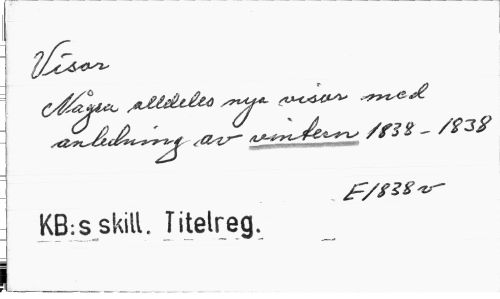 Visor
Några alldeles nya visor med
anledning av vintern 1838-1838
E1838v
KB:s skill. Titelreg.